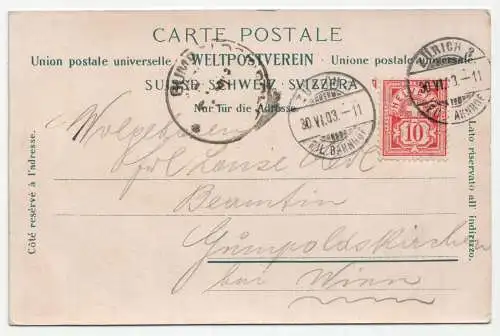 CARTE POSTALE
Union postale universelle. WELTPOSTVEREIN - Unione postale universale.
SUISSE. SCHWEIZ. SVIZZERA
Nur für die Adresse.
Côté reservé à l'adresse.
Lato riservato all' indirizzo.
ZÜRICH
30.VI.03.-11
FIL. BAHNHOF
ZÜRICH 3
30.VI.03.-11
BAHNHOF
HELVETIA
10
GUMPOLDS
Wolgeboren
Frl Louise
Beamtin
Gumpoldskirchen
bei Wien